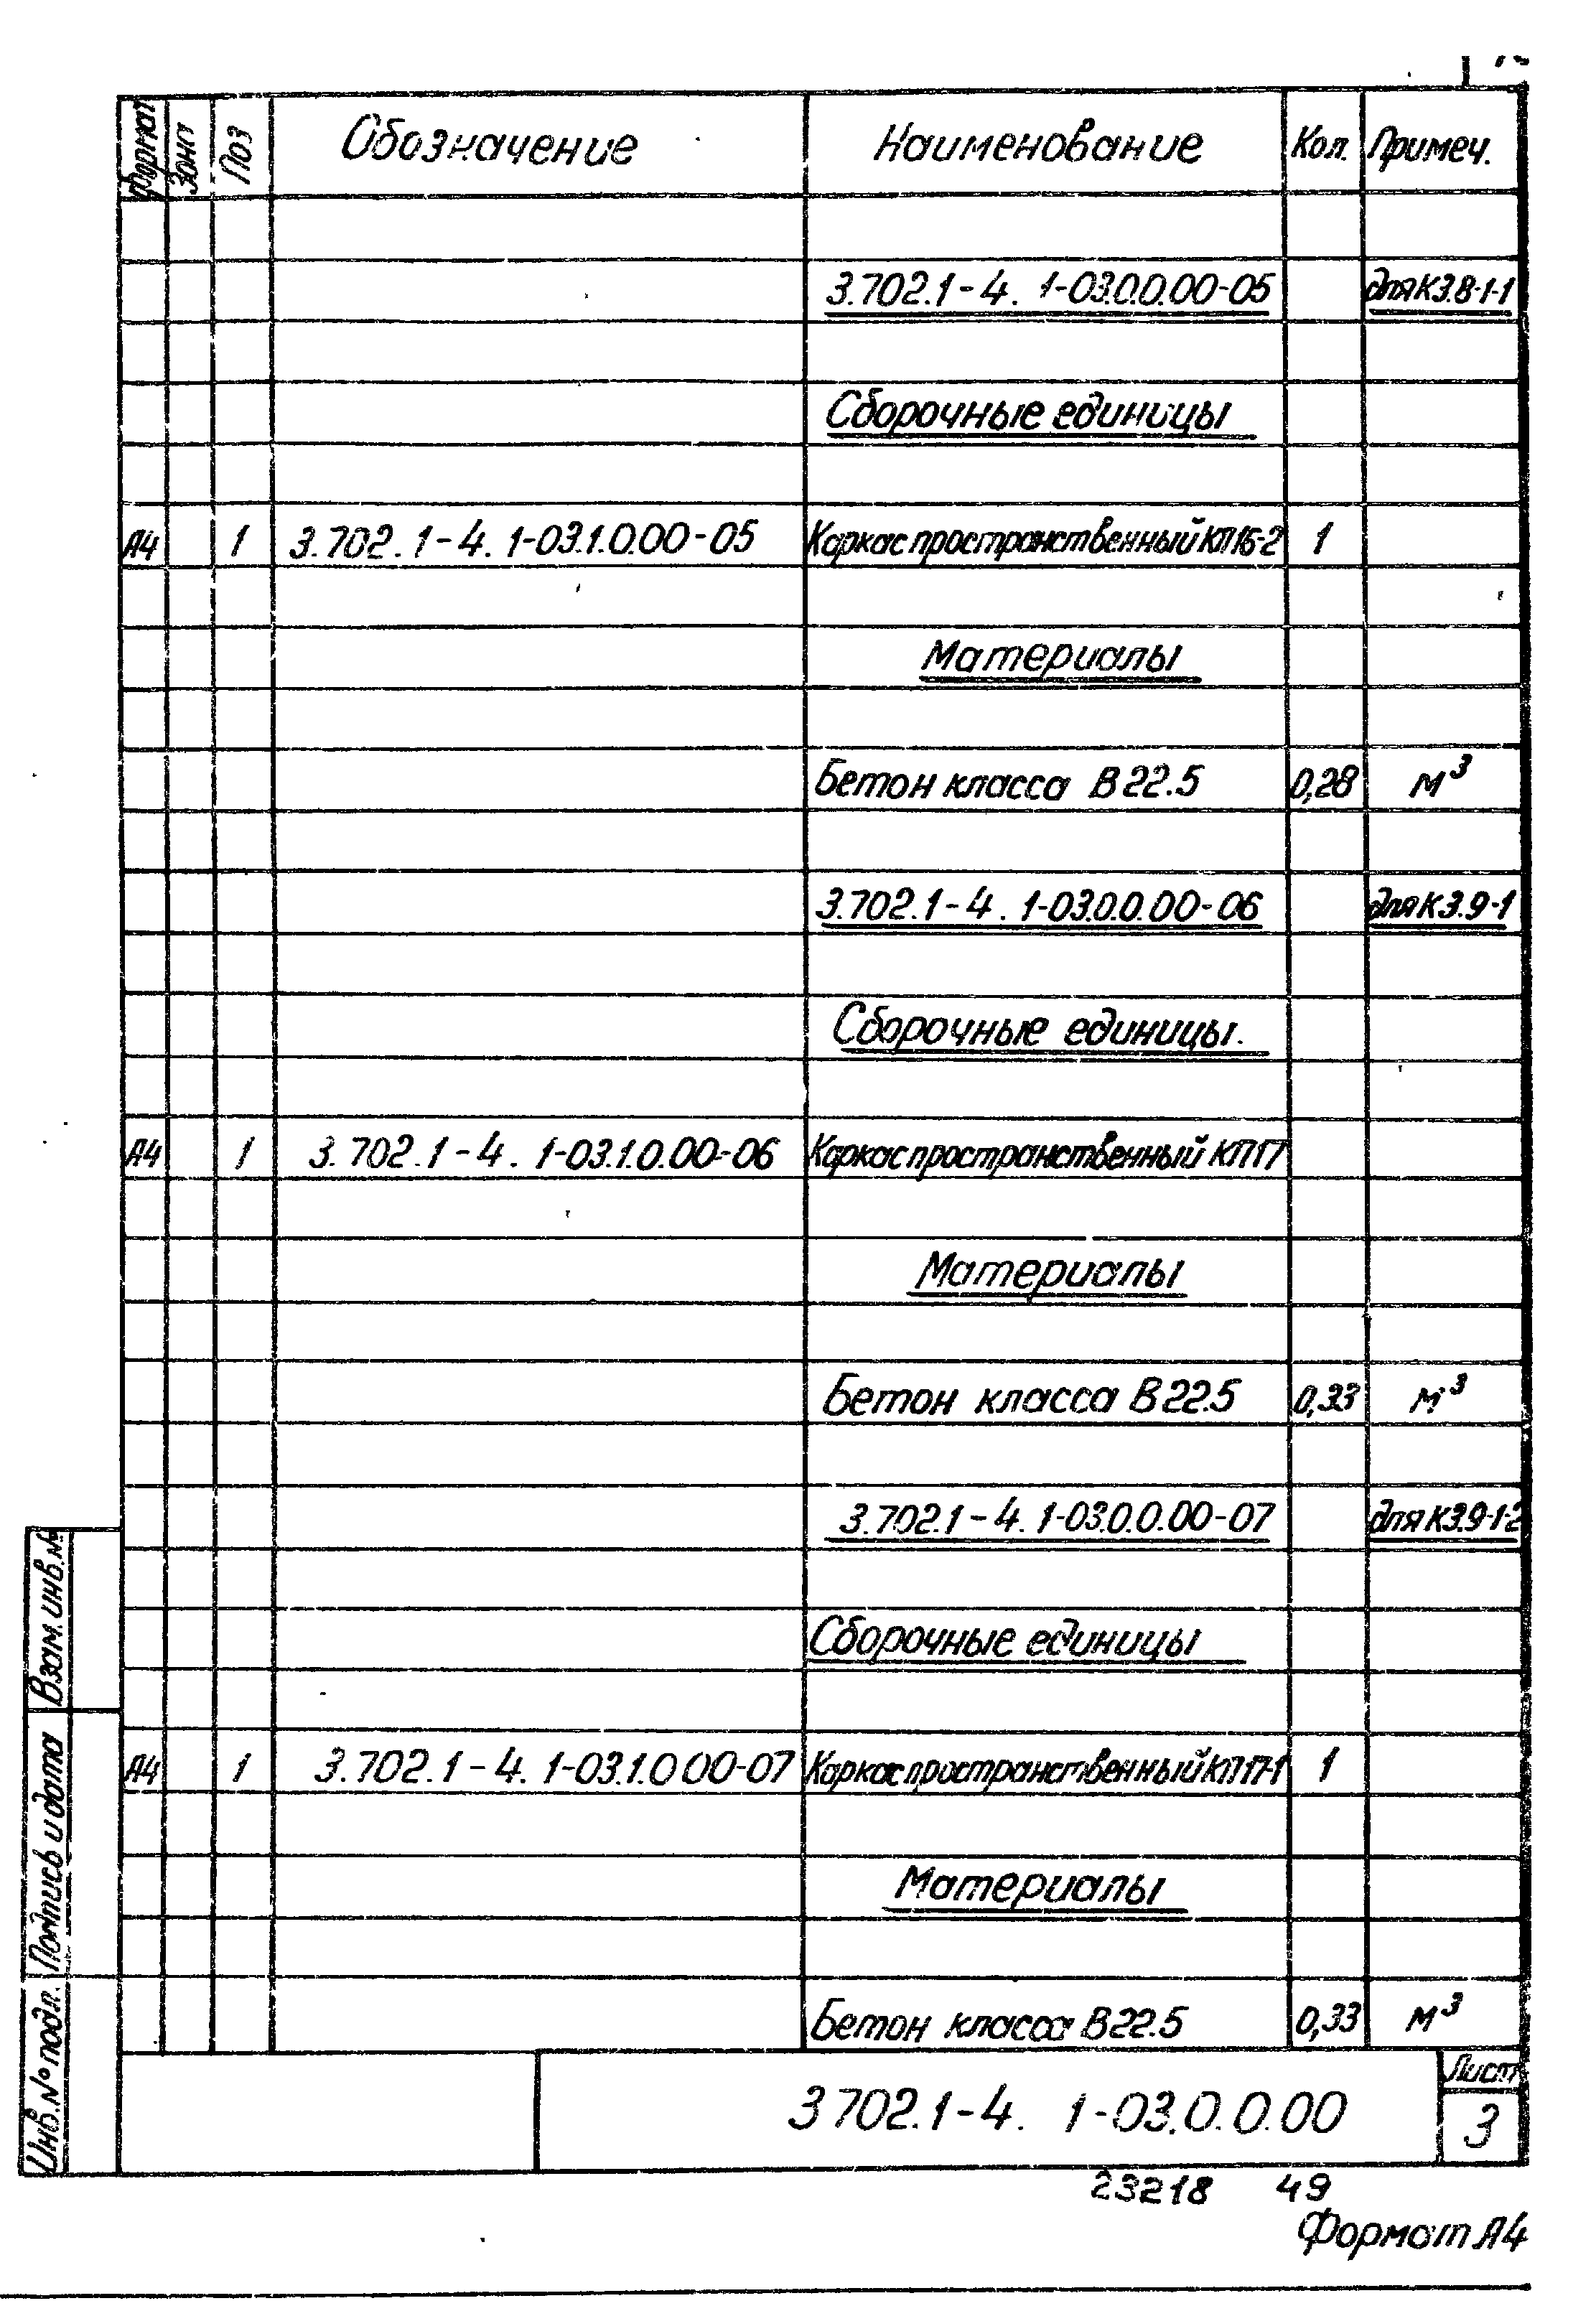 Формат Зона Поз Обозначение Наименование Кол. Примеч.
3.702.1-4. 1-03.0.0.00-05 для К3.8-1-1
Сборочные единицы
А4 1 3.702.1-4. 1-03.1.0.00-05 Каркас пространственный КП16-2 1
Материалы
Бетон класса В 22.5 0,28 м³
3.702.1-4. 1-03.0.0.00-06 для К3.9-1
Сборочные единицы.
А4 1 3.702.1-4. 1-03.1.0.00-06 Каркас пространственный КП17
Материалы
Бетон класса В 22.5 0,33 м³
3.702.1-4. 1-03.0.0.00-07 для К3.9-1-2
Сборочные единицы
А4 1 3.702.1-4. 1-03.1.0 00-07 Каркас пространственный КП17-1 1
Материалы
Бетон класса В 22.5 0,33 м³
Взам. инв. №
Подпись и дата
Инв. № подл.
3 702.1-4. 1-03.0.0.00
Лист
3
23218 49
Формат А4